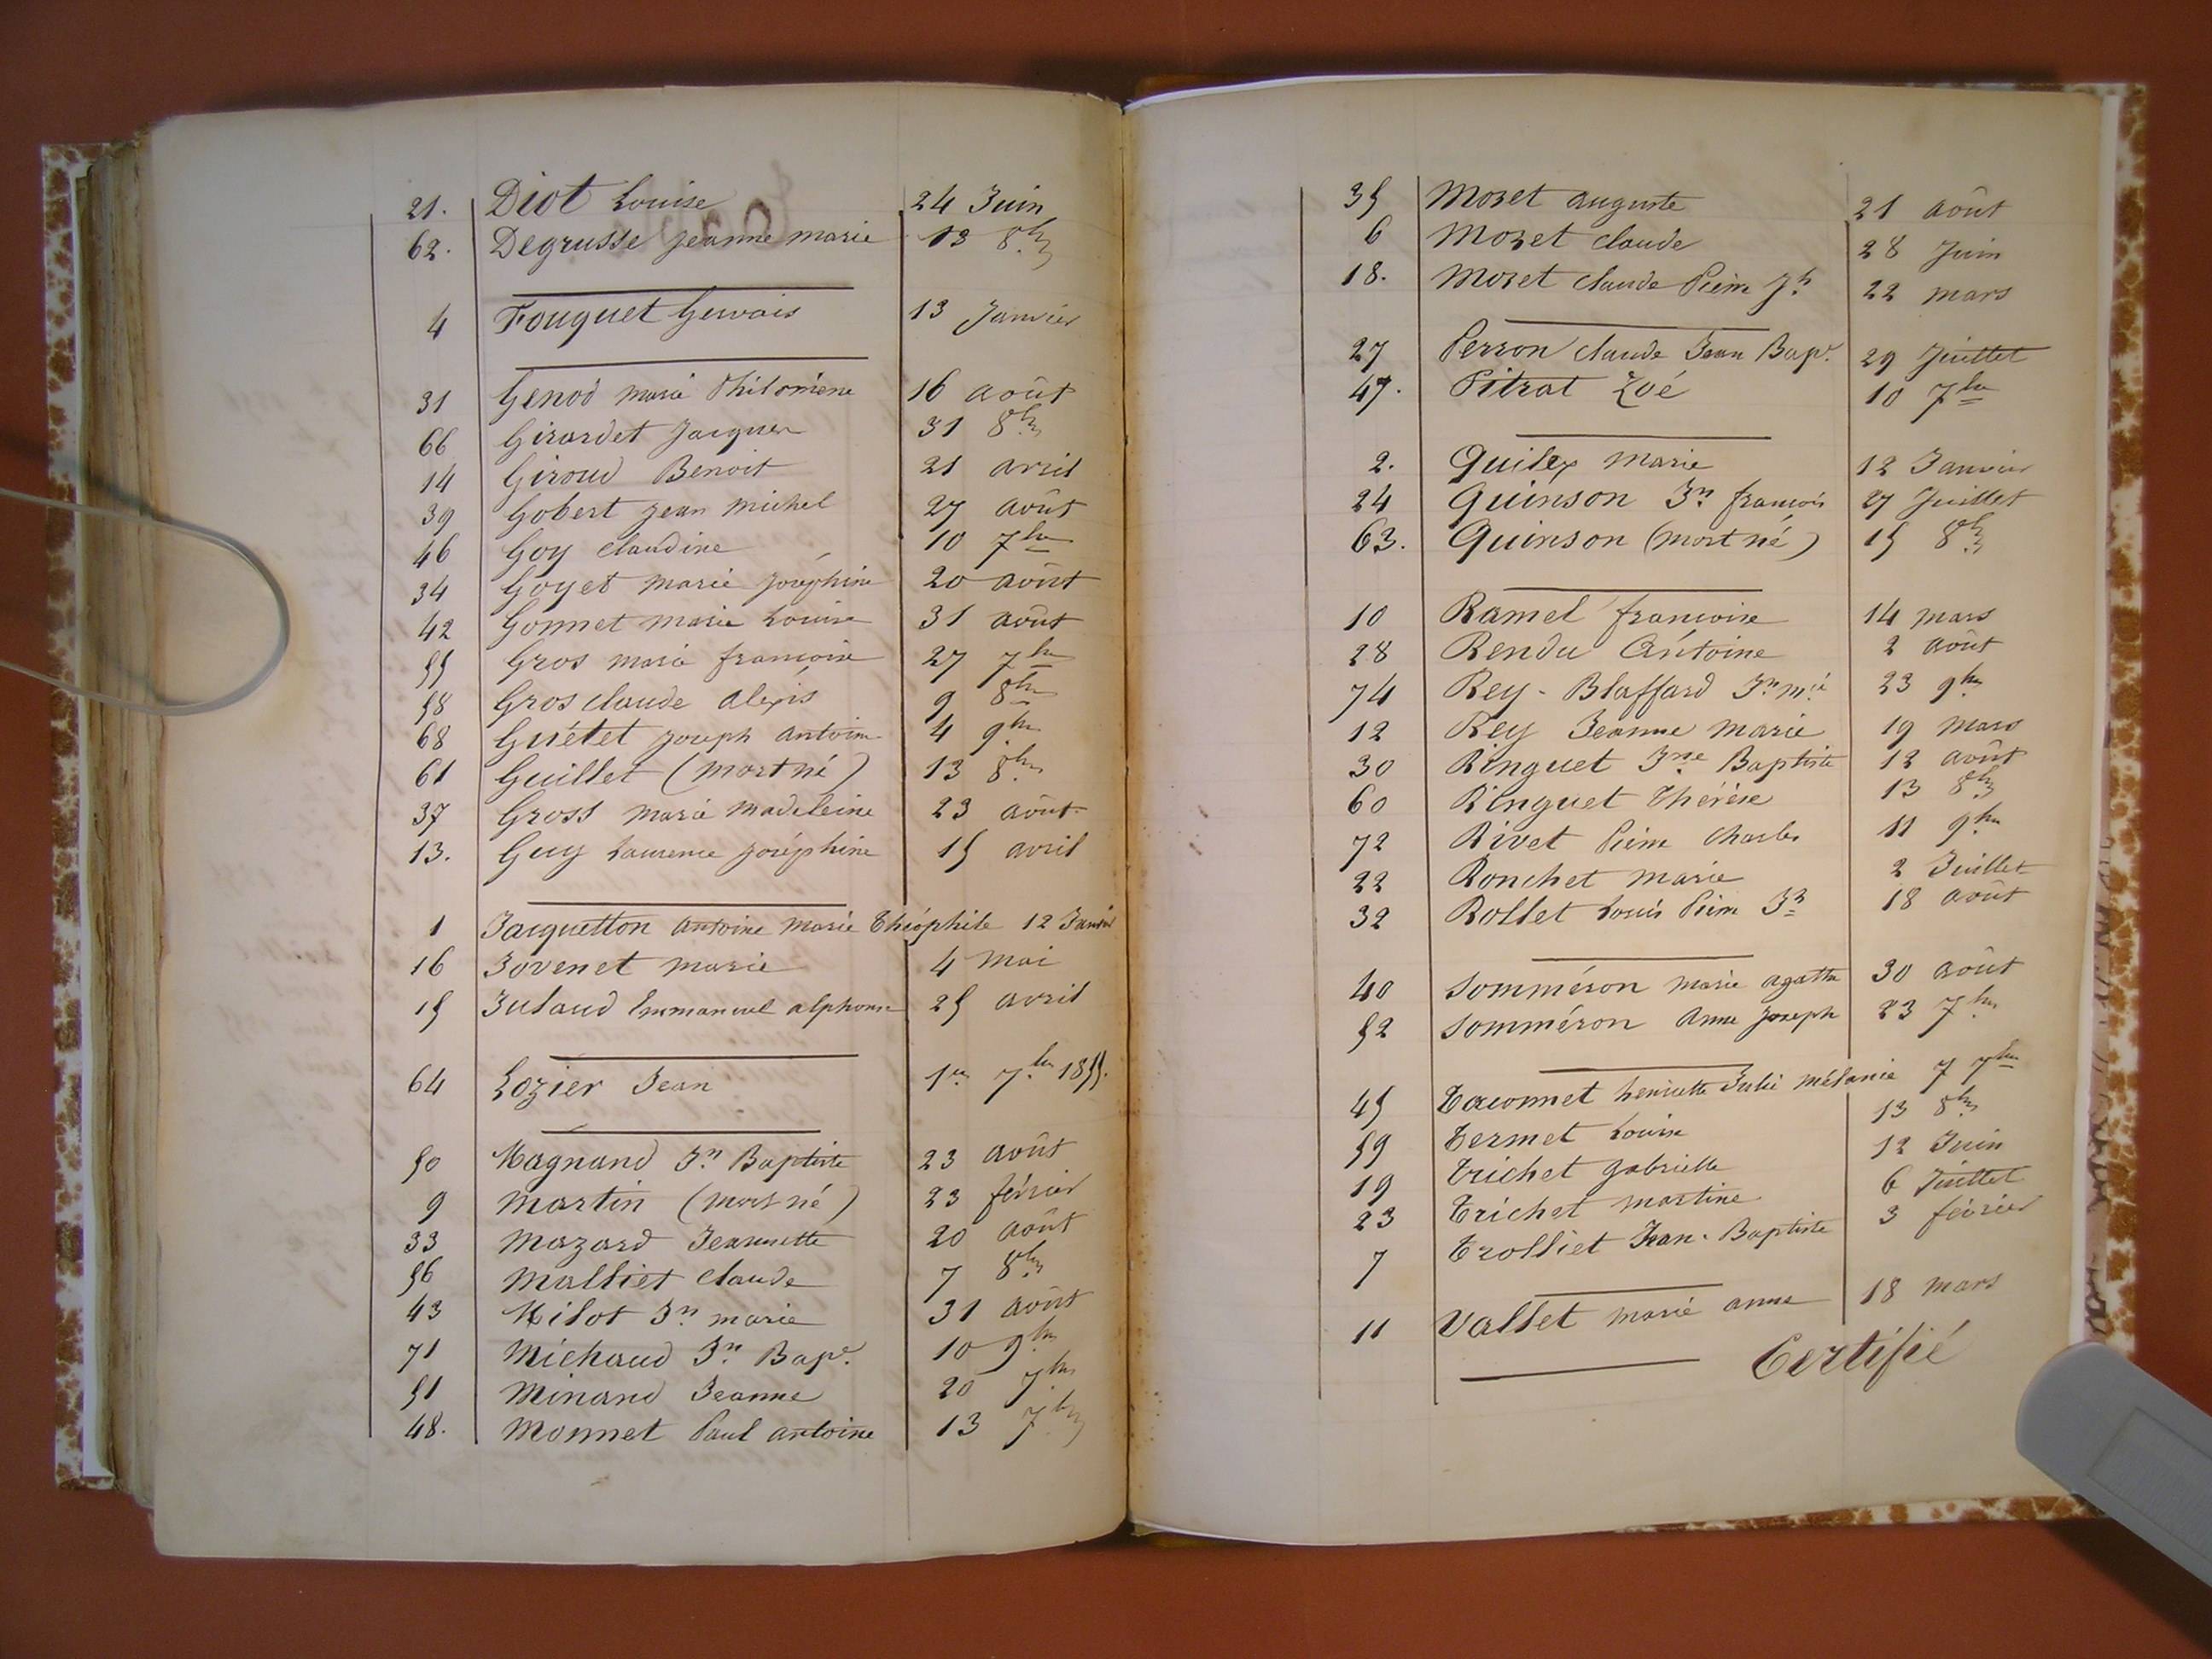 21. Diot Louise 24 Juin
62. Degrusse jeanne marie 13 8bre
4 Fouquet Gervais 13 Janvier
31 Genod marie Philomène 16 août
66 Girardet Jacques 31 8bre
14 Giroud Benoit 21 avril
39 Gobert jean michel 27 août
46 Goy claudine 10 7bre
34 Goyet marie joséphine 20 août
42 Gonnet marie Louise 31 août
55 Gros marie françoise 27 7bre
58 Gros claude alexis 9 8bre
68 Guétet joseph antoine 4 9bre
61 Guillet (mort né) 13 8bre
37 Gross marie madeleine 23 août
13. Guy Laurence joséphine 15 avril
1 Jacquetton antoine marie Théophile 12 Janvier
16 Jovenet marie 4 mai
15 Juland Emmanuel alphonse 25 avril
64 Lozier Jean 1er 7bre 1855.
50 Magnand Jn Baptiste 23 août
9 martin (mort né) 23 février
33 mazard Jeannette 20 août
56 malliet claude 7 8bre
43 Milot Jn marie 31 août
71 michaud Jn Bape. 10 9bre
51 minand Jeanne 20 7bre
48. monnet Paul antoine 13 7bre
35 moret auguste 21 août
6 moret claude 28 Juin
18. moret claude Pierre Jh 22 mars
27 Perron claude Jean Bape. 29 Juillet
47. Pitrat Zoé 10 7bre
2. Quilex marie 12 Janvier
24 Quinson Jn françois 27 Juillet
63. Quinson (mort né) 15 8bre
10 Ramel françoise 14 mars
28 Rendu Antoine 2 août
74 Rey-Blaffard Jn mie 23 9bre
12 Rey Jeanne marie 19 mars
30 Ringuet Jne Baptiste 12 août
60 Ringuet Thérèse 13 8bre
72 Rivet Pierre charles 11 9bre
22 Ronchet marie 2 Juillet
32 Rollet Louis Pierre Jh 18 août
40 Somméron marie agathe 30 août
52 Somméron anne joseph 23 7bre
45 Taconnet henriette Julie mélanie 7 7bre
59 Termet Louise 13 8bre
19 Trichet gabrielle 12 Juin
23 Trichet martine 6 Juillet
7 Trolliet Jean-Baptiste 3 février
11 Vallet marie anne 18 mars
Certifié